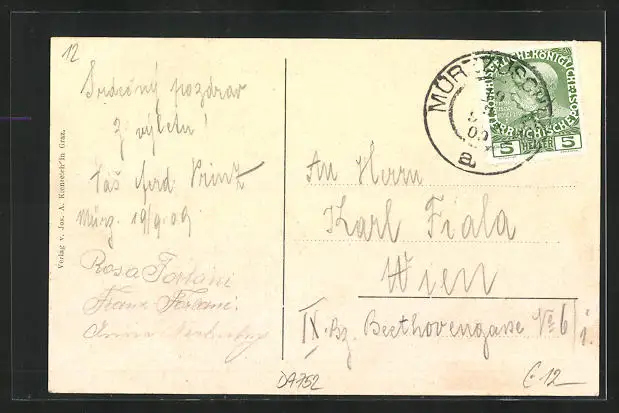 12
Srdečný pozdrav
z výletu!
Váš Ferd. Prinz
Mürz. 19/9.09
Rosa Forlani
Franz Forlani.
Verlag v. Jos. A. Kienreich in Graz.
MÜRZZUSCHLAG
a
KAISERLICHE KÖNIGLICHE
ÖSTERREICHISCHE
5 HELLER 5
An Herrn
Karl Fiala
Wien
IX. Bz. Beethovengasse No 6/i.
DA752
€ 12